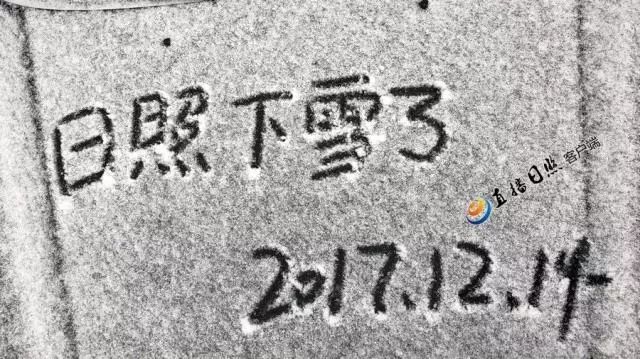 日照下雪了
直播日照 客户端
2017.12.14